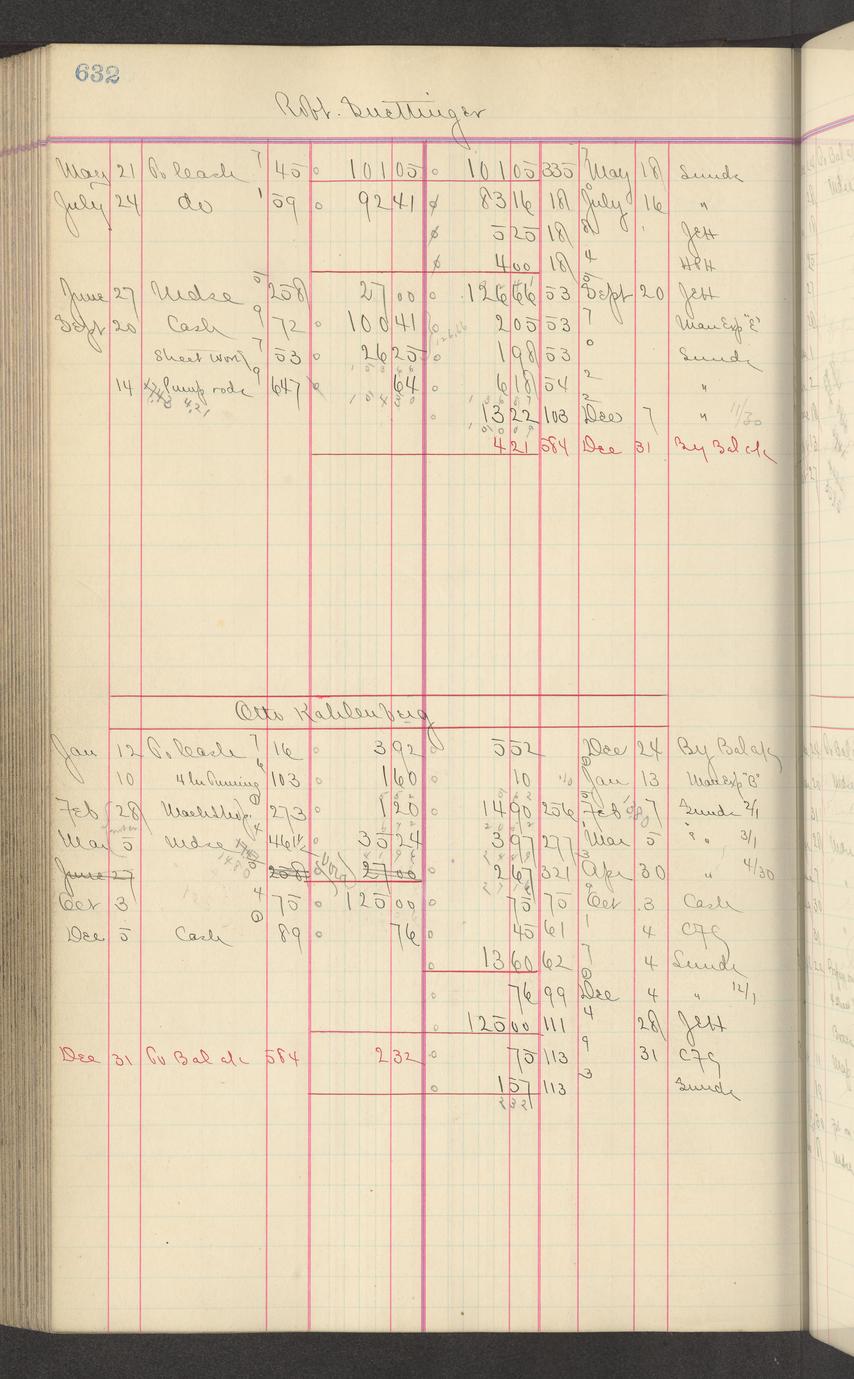 632
Robt. Duettinger
May 21 To Cash 7 45 101 05 101 05 335 May 18 Sunds
July 24 do 1 59 92 41 83 16 18 July 16 "
5 25 18 JEH
4 00 18 4 HPH
June 27 Mdse 5 258 27 00 126 66 53 Sept 20 JEH
Sept 20 Cash 9 72 100 41 2 05 53 7 Man Exp "E"
Sheet Work 7 53 26 25 1 98 53 0 Sunds
14 Pump rods 9 647 64 6 18 54 2 "
13 22 103 Dec 7 " 11/30
4 21 584 Dec 31 By Bal c/d
Otto Kahlenberg
Jan 12 To Cash 7 16 3 92 5 52 Dec 24 By Bal c/d
10 4 In Tinning 6 103 1 60 10 Jan 13 Man Exp "B"
Feb 28 Mach Shop 273 1 20 14 90 256 Feb 7 Sunds 2/1
Mar 5 Mdse 4 461½ 35 24 3 97 277 Mar 5 " " 3/1
June 27 258 27 00 2 67 321 Apr 30 " 4/30
Oct 3 4 75 125 00 75 75 Oct 3 Cash
Dec 5 Cash 89 76 45 61 1 4 C7G
13 60 62 7 4 Sunds
76 99 Dec 4 " 12/1
125 00 111 4 28 JEH
Dec 31 To Bal c/d 584 2 32 75 113 9 31 C7G
1 57 113 3 Sunds
2 32